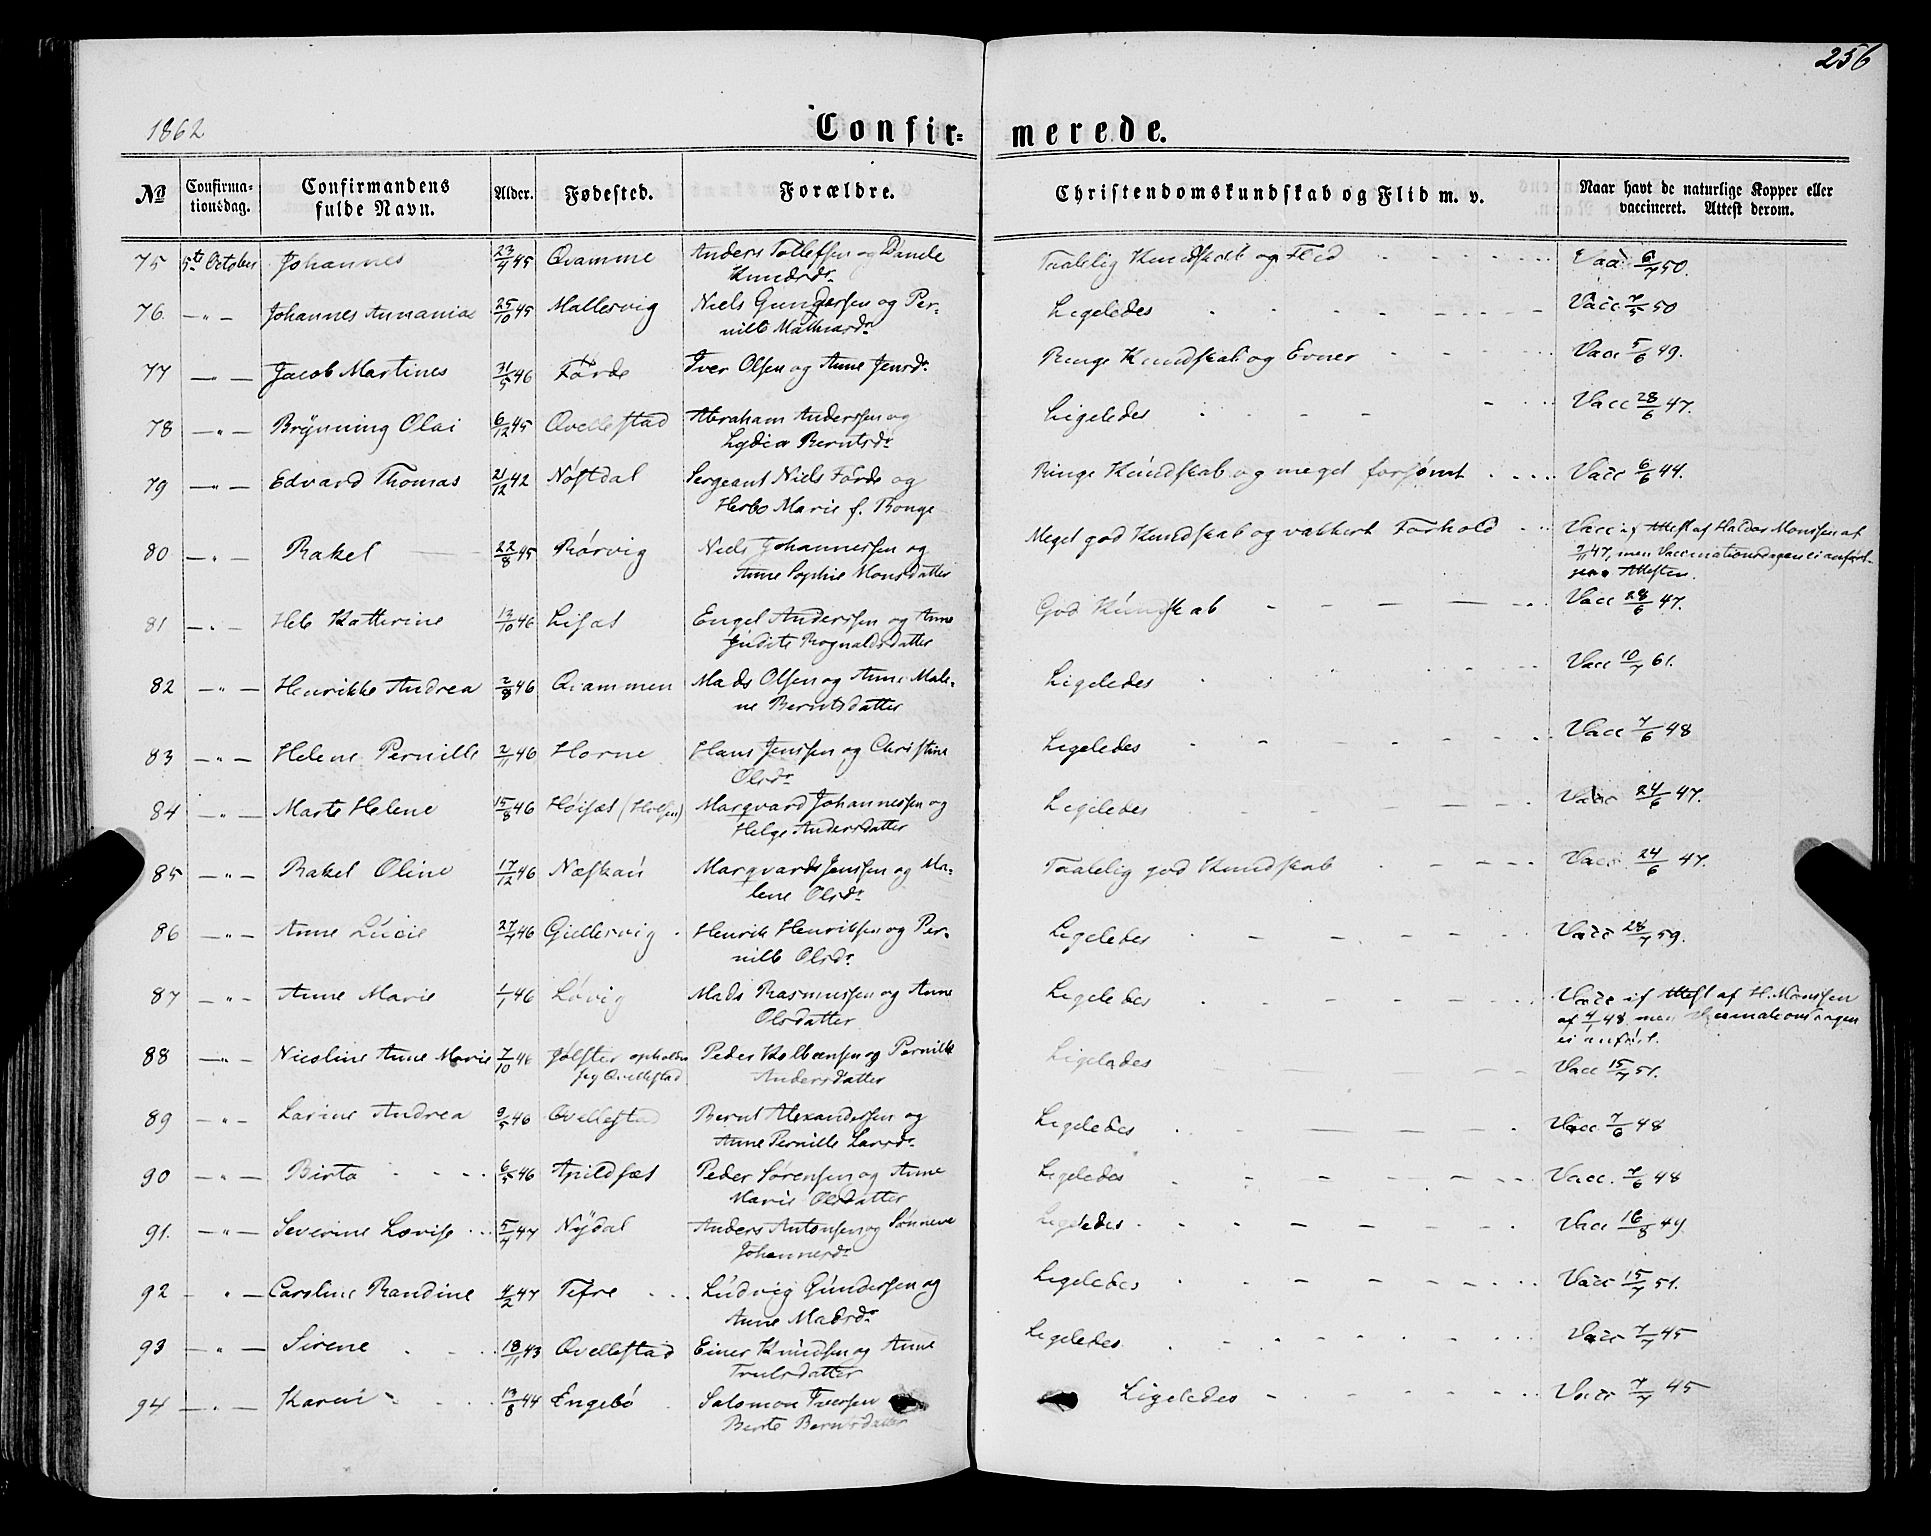 256
1862
Confir-merede.
No Confirma-tionsdag. Confirmandens fulde Navn. Alder. Fødested. Forældre. Christendomskundskab og Flid m. v. Naar havt de naturlige Kopper eller vaccineret. Attest derom.
75 5te October Johannes 23/4 45 Qvamme Anders Tollefsen og Knudsdr. Taalelig Kundskab og Flid Vacc 6/7 50.
76. — " — Johannes Annanias 25/10 45 Mallesvig Niels Gundersen og Per-nille Vacc 7/5 50
Ligeledes
77 — " — Jacob Martines 31/5 46 Førde Iver Olsen og Anne Jensdr. Ringe Kundskab og Evner Vacc 5/6 49.
78 — " — Brynning Olai 6/12 45 Qvellestad Abraham Anderssen og
Lydia Berntsdr. Ligeledes Vacc 28/6 47.
79 — " — Edvard Thomas 21/12 42 Nøstdal Sergeant Niels Førde og
Marie f. Ringe Kundskab og meget forsømt Vacc 6/6 44.
80 — " — Rakel 22/8 45 Rørvig Niels Johannessen og
Anne Sophie Monsdatter Meget god Kundskab og vakkert Forhold Vacc if Attest af Haldor Monssen af
47, men Vaccinationsdagen ei anført
Attesten.
81 — " — Katterine 13/10 46 Engel Anderssen og Anne
Judite Rognaldsdatter God Kundskab Vacc 28/6 47.
82 — " — Henrikke Andrea 2/8 46 Qvammen Mads Olsen og Anne Male-
ne Berntsdatter Ligeledes Vacc 10/7 61.
83 — " — Helene Pernille 2/11 46 Horne Hans Jenssen og Christine
Olsdr. Ligeledes Vacc 7/6 48
84 — " — Marte Helene 15/8 46 Høisæt (Holsen) Marqvard Johannessen og
Helge Andersdatter Ligeledes Vacc 24/6 47.
85 — " — Rakel Oline 17/12 46 Marqvard Jenssen og Ma-
lene Olsdr. Taalelig god Kundskab Vacc 24/6 47.
86 — " — Anne Lucie 27/4 46 Gjellesvig Henrik Henriksen og Per-
nille Olsdr. Ligeledes Vacc 28/7 59.
87 — " — Anne Marie 1/1 46 Løvig Mads Rasmussen og Anne
Olsdatter Ligeledes Vacc if Attest af H. Monssen
af 4/1 48, men Vaccinationsdagen
ei anført.
88 — " — Nicoline Anne Marie 7/10 46 Jølster opholder
sig Qvellestad Peder Kolbensen og Pernille
Andersdatter Ligeledes Vacc 15/7 51.
89 — " — Larine Andrea 9/5 46 Qvellestad Bernt Alexandersen og
Anne Pernille Larsdr. Ligeledes Vacc 7/6 48
90 — " — Birta 6/5 46 Apildsæt Peder Sørensen og Anne
Marie Olsdatter Ligeledes Vacc. 7/6 48
91. — " — Severine Lovise 5/4 47 Nydal Anders Antonsen og Sønneve
Johannesdr. Ligeledes Vacc 16/8 49
92 — " — Caroline Randine 4/2 47 Tefre Ludvig Gundersen og
Anne Madsdr. Ligeledes Vacc 15/7 51.
93 — " — Sirene 18/11 43 Qvellestad Einer Knudsen og Anne
Trulsdatter Ligeledes Vacc 7/7 45
94 — " — Karen 13/8 44 Engebø Salomon Iversen
Berte Berntsdatter Ligeledes Vacc 7/7 45